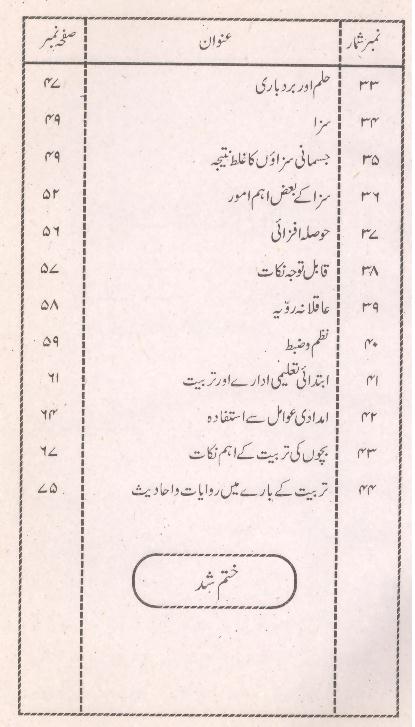 نمبر شمار عنوان صفحہ نمبر
۳۳ حلم اور بردباری ۴۷
۳۴ سزا ۴۹
۳۵ جسمانی سزاؤں کا غلط نتیجہ ۴۹
۳۶ سزا کے بعض اہم امور ۵۲
۳۷ حوصلہ افزائی ۵۶
۳۸ قابل توجہ نکات ۵۷
۳۹ عاقلانہ روّیہ ۵۸
۴۰ نظم و ضبط ۵۹
۴۱ ابتدائی تعلیمی ادارے اور تربیت ۶۱
۴۲ امدادی عوامل سے استفادہ ۶۴
۴۳ بچوں کی تربیت کے اہم نکات ۶۷
۴۴ تربیت کے بارے میں روایات و احادیث ۷۵
ختم شد